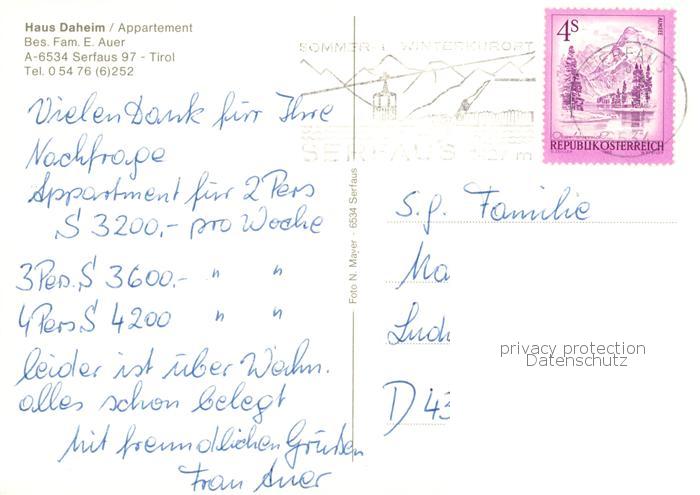 Haus Daheim / Appartement
Bes. Fam. E. Auer
A-6534 Serfaus 97 - Tirol
Tel. 0 54 76 (6)252
Vielen Dank für Ihre
Nachfrage
Appartment für 2 Pers
S 3200,- pro Woche
3 Pers. S 3600.- " "
4 Pers S 4200 " "
leider ist über Weihn.
alles schon belegt
Mit freundlichen Grüßen
Frau Auer
Foto N. Mayer - 6534 Serfaus
SOMMER- U. WINTERKURORT
SERFAUS 1427 m
4S
ALMSEE
REPUBLIK ÖSTERREICH
SERFAUS
S.g. Familie
Ma
Lud
D 43
privacy protection
Datenschutz